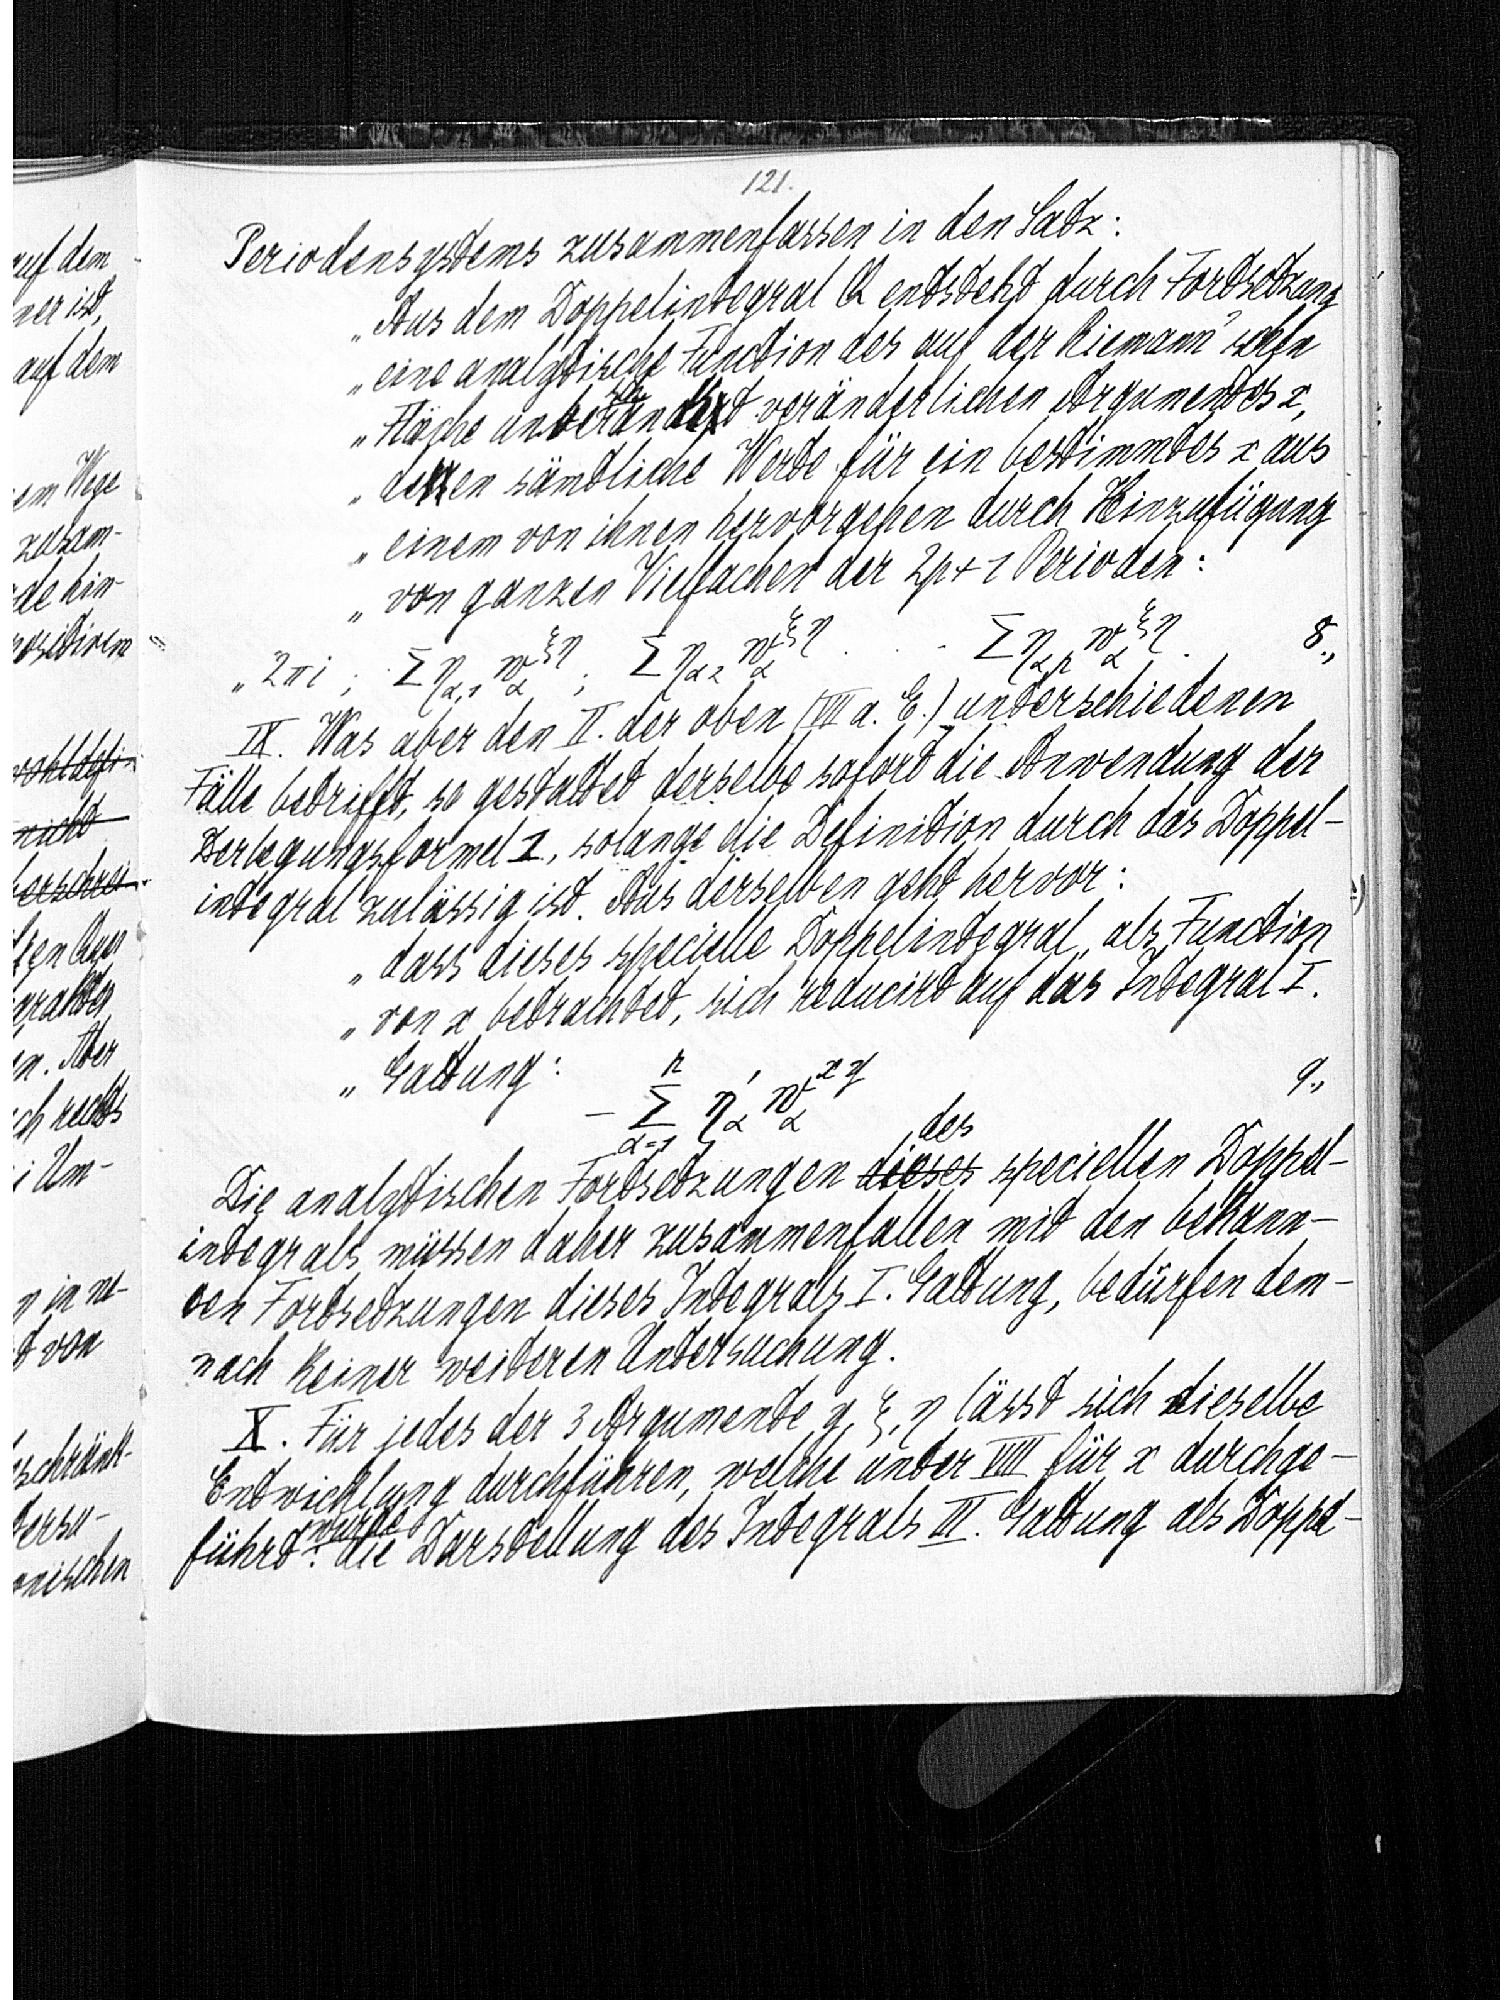 121.
Periodensystems zusammenfassen in den Satz:
„Aus dem Doppelintegral Q entsteht durch Fortsetzung
„eine analytische Function des auf der Riemann'schen
„Fläche unbeschränkt veränderlichen Argumentes x,
„dessen sämtliche Werte für ein bestimmtes x aus
„einem von ihnen hervorgehen durch Hinzufügung
„von ganzen Vielfachen der 2p+1 Perioden:
„2πi ; Σ η_{α,1} w_α^{ξη} ; Σ η_{α2} w_α^{ξη} . . . Σ η_{α,p} w_α^{ξη} . 8.,
IX. Was aber den II. der oben (VII a. E.) unterschiedenen
Fälle betrifft, so gestattet derselbe sofort die Anwendung der
Zerlegungsformel 1., solange die Definition durch das Doppel-
integral zulässig ist. Aus derselben geht hervor:
„dass dieses specielle Doppelintegral, als Function
„von x betrachtet, sich reducirt auf das Integral I.
„Gattung:
− Σ_{α=1}^{p} η'_α w_α^{xy} 9.,
des
Die analytischen Fortsetzungen dieses speciellen Doppel-
integrals müssen daher zusammenfallen mit den bekann-
ten Fortsetzungen dieses Integrals I. Gattung, bedürfen dem-
nach keiner weiteren Untersuchung.
X. Für jedes der 3 Argumente y, ξ, η lässt sich dieselbe
Entwicklung durchführen, welche unter VIII für x durchge-
wurde
führt: die Darstellung des Integrals III. Gattung als Doppel-
auf dem
ner ist,
auf dem
em Wege
zusam-
de hin-
positiven
nicht
n. Aber
ch rechts
i Um-
t von
schränk-
tersu-